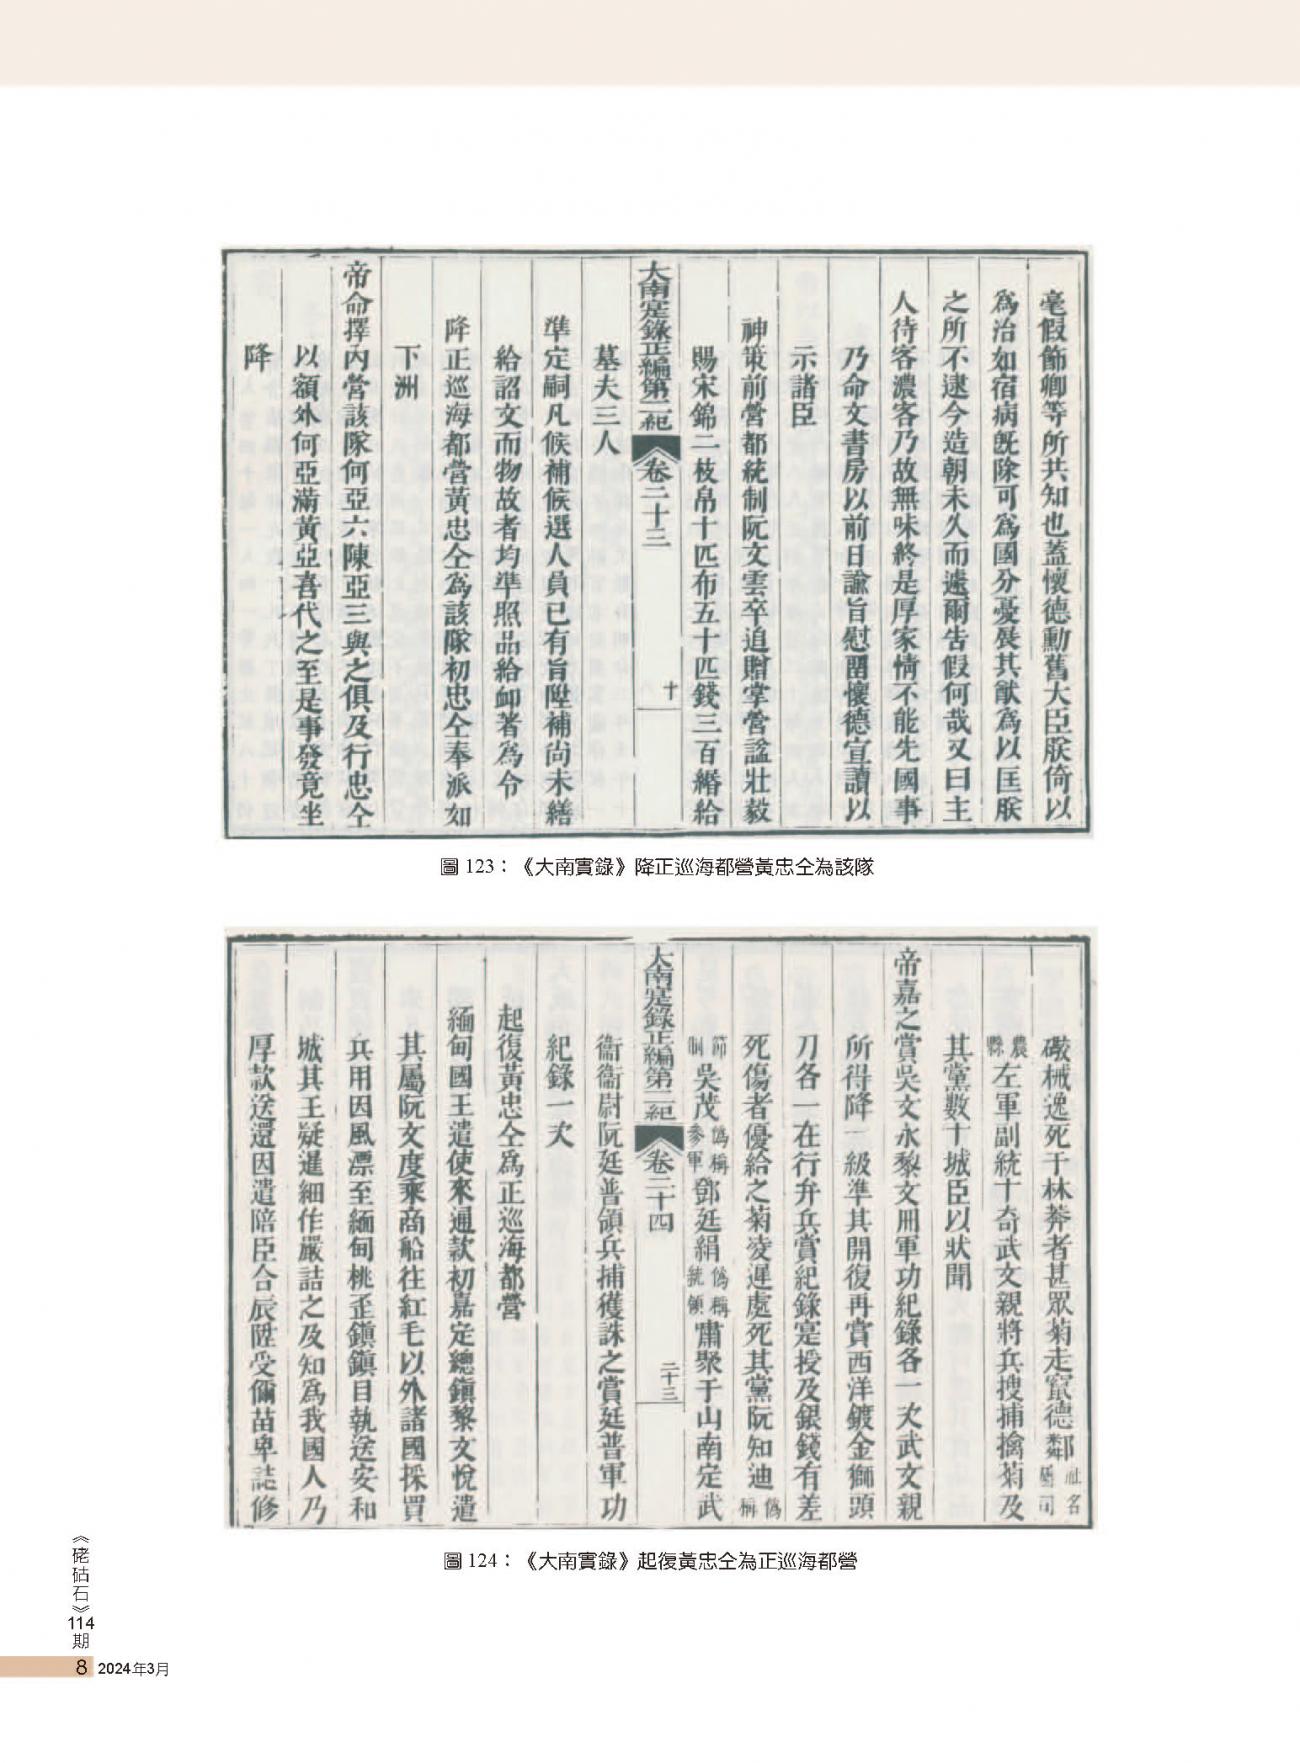 毫假節卿等所共知也蓋懷德勳舊大臣朕倚以
為治如宿病旣除可為國分憂展其猷為以匡朕
之所不逮今造朝未久而遽爾告假何哉又曰主
人待客濃客乃故無味終是厚家情不能先國事
乃命文書房以前日諭旨慰畱懷德宣讀以
示諸臣
神策前營都統制阮文雲卒追贈掌營謚壯毅
賜宋錦二枝帛十匹布五十匹錢三百緡給
大南寔錄正編第二紀 卷二十三 十
墓夫三人
準定嗣凡候補候選人員已有旨陞補尚未繕
給詔文而物故者均準照品給卹著為令
降正巡海都營黃忠仝為該隊初忠仝奉派如
下洲
帝命擇內營該隊何亞六陳亞三與之俱及行忠仝
以額外何亞滿黃亞喜代之至是事發竟坐
降
圖 123：《大南實錄》降正巡海都營黃忠仝為該隊
礮械逸死于林莽者甚眾菊走竄德鄰社名屬司
農縣左軍副統十奇武文親將兵搜捕擒菊及
其黨數十城臣以狀聞
帝嘉之賞吳文永黎文冊軍功紀錄各一次武文親
所得降一級準其開復再賞西洋鍍金獅頭
刀各一在行弁兵賞紀錄寔授及銀錢有差
死傷者優給之菊凌遲處死其黨阮知迪偽稱
節制吳茂偽稱參軍鄧廷絹偽稱統領嘯聚于山南定武
大南寔錄正編第二紀 卷二十四 二十三
衞衞尉阮廷普領兵捕獲誅之賞廷普軍功
紀錄一次
起復黃忠仝為正巡海都營
緬甸國王遣使來通款初嘉定總鎮黎文悅遣
其屬阮文度乘商船往紅毛以外諸國採買
兵用因風漂至緬甸桃歪鎮鎮目執送安和
城其王疑暹細作嚴詰之及知為我國人乃
厚款送還因遣陪臣合辰陞受儞苗卑誌修
圖 124：《大南實錄》起復黃忠仝為正巡海都營
《硓𥑮石》114期
8 2024年3月